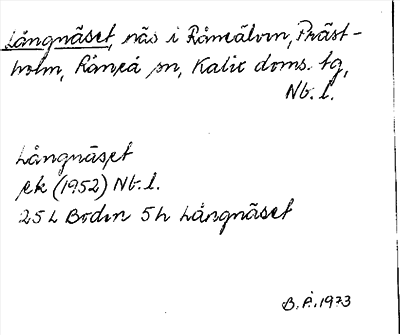 Långnäset, näs i Råneälven, Präst-
holm, Råneå sn, Kalix doms. tg,
Nb. l.
Långnäset
ek (1952) Nb. l.
25 L Boden 5h Långnäset
B. Å. 1973